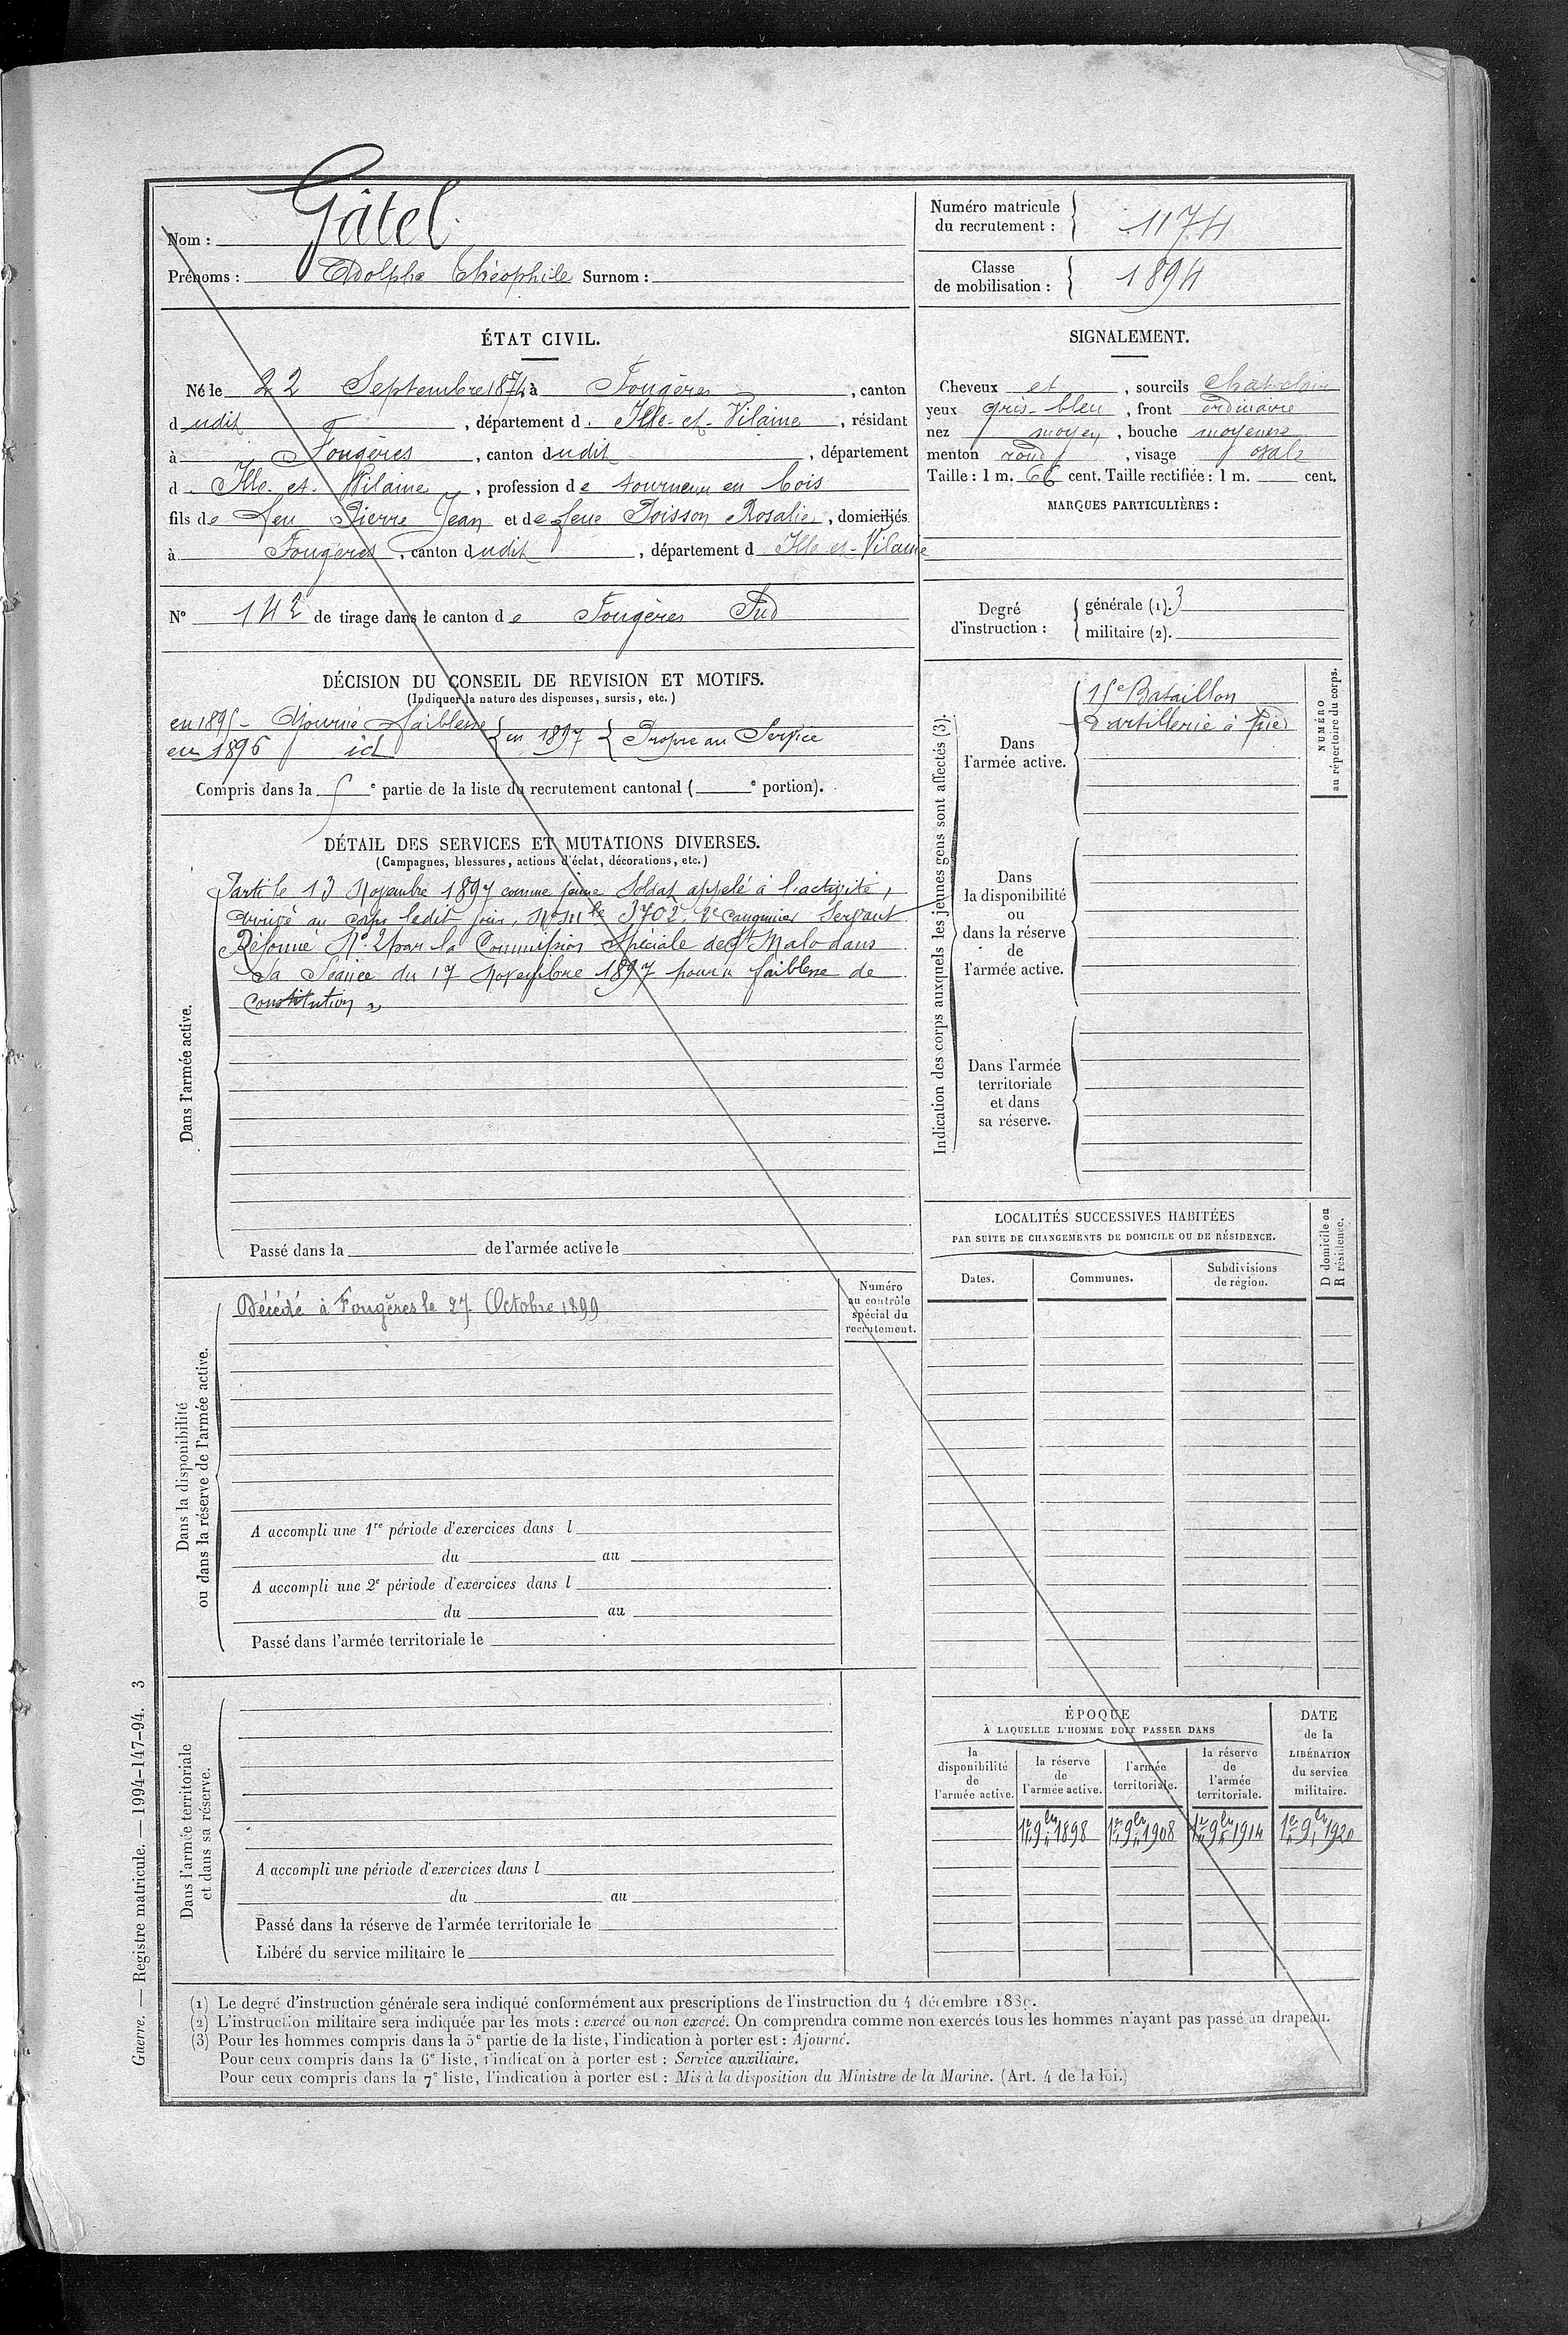 Nom : Gâtel
Prénoms : Adolphe Théophile Surnom :
Numéro matricule du recrutement : 1174
Classe de mobilisation : 1894
ÉTAT CIVIL.
Né le 22 Septembre 1874 à Fougères, canton
dudit, département d. Ille-et-Vilaine, résidant
à Fougères, canton dudit, département
d. Ille-et-Vilaine, profession de tourneur en bois
fils de feu Pierre Jean et de feue Poisson Rosalie, domiciliés
à Fougères, canton dudit, département d Ille-et-Vilaine
N° 142 de tirage dans le canton de Fougères Sud
SIGNALEMENT.
Cheveux et, sourcils chat-clair
yeux gris-bleu, front ordinaire
nez moyen, bouche moyenne
menton rond, visage ovale
Taille : 1 m. 66 cent. Taille rectifiée : 1 m. cent.
MARQUES PARTICULIÈRES :
Degré d'instruction :
générale (1). 3
militaire (2).
DÉCISION DU CONSEIL DE REVISION ET MOTIFS.
(Indiquer la nature des dispenses, sursis, etc.)
en 1895 - Ajourné faiblesse
en 1896 id
en 1897 Propre au Service
Compris dans la 5e partie de la liste du recrutement cantonal ( e portion).
DÉTAIL DES SERVICES ET MUTATIONS DIVERSES.
(Campagnes, blessures, actions d'éclat, décorations, etc.)
Dans l'armée active.
Parti le 13 Novembre 1897 comme jeune Soldat appelé à l'activité,
arrivé au corps ledit jour, No mle 3702, 2e Canonnier Servant
Réformé No 2 par la Commission Spéciale de St Malo dans
sa Séance du 17 Novembre 1897 pour faiblesse de
constitution
Passé dans la de l'armée active le
Indication des corps auxquels les jeunes gens sont affectés (3).
Dans l'armée active.
15e Bataillon
d'artillerie à pied
NUMÉRO au répertoire du corps.
Dans la disponibilité ou dans la réserve de l'armée active.
Dans l'armée territoriale et dans sa réserve.
LOCALITÉS SUCCESSIVES HABITÉES
PAR SUITE DE CHANGEMENTS DE DOMICILE OU DE RÉSIDENCE.
Dates. Communes. Subdivisions de région. D domicile ou R résidence.
Numéro au contrôle spécial du recrutement.
Dans la disponibilité ou dans la réserve de l'armée active.
Décédé à Fougères le 27 Octobre 1899
A accompli une 1re période d'exercices dans l
du au
A accompli une 2e période d'exercices dans l
du au
Passé dans l'armée territoriale le
Dans l'armée territoriale et dans sa réserve.
A accompli une période d'exercices dans l
du au
Passé dans la réserve de l'armée territoriale le
Libéré du service militaire le
ÉPOQUE
À LAQUELLE L'HOMME DOIT PASSER DANS
la disponibilité de l'armée active.
la réserve de l'armée active.
l'armée territoriale.
la réserve de l'armée territoriale.
DATE de la LIBÉRATION du service militaire.
1er 9bre 1898 1er 9bre 1908 1er 9bre 1914 1er 9bre 1920
(1) Le degré d'instruction générale sera indiqué conformément aux prescriptions de l'instruction du 4 décembre
(2) L'instruction militaire sera indiquée par les mots : exercé ou non exercé. On comprendra comme non exercés tous les hommes n'ayant pas passé au drapeau.
(3) Pour les hommes compris dans la 5e partie de la liste, l'indication à porter est : Ajourné.
Pour ceux compris dans la 6e liste, l'indication à porter est : Service auxiliaire.
Pour ceux compris dans la 7e liste, l'indication à porter est : Mis à la disposition du Ministre de la Marine. (Art. 4 de la loi.)
Guerre. — Registre matricule. — 1994-147-94. 3